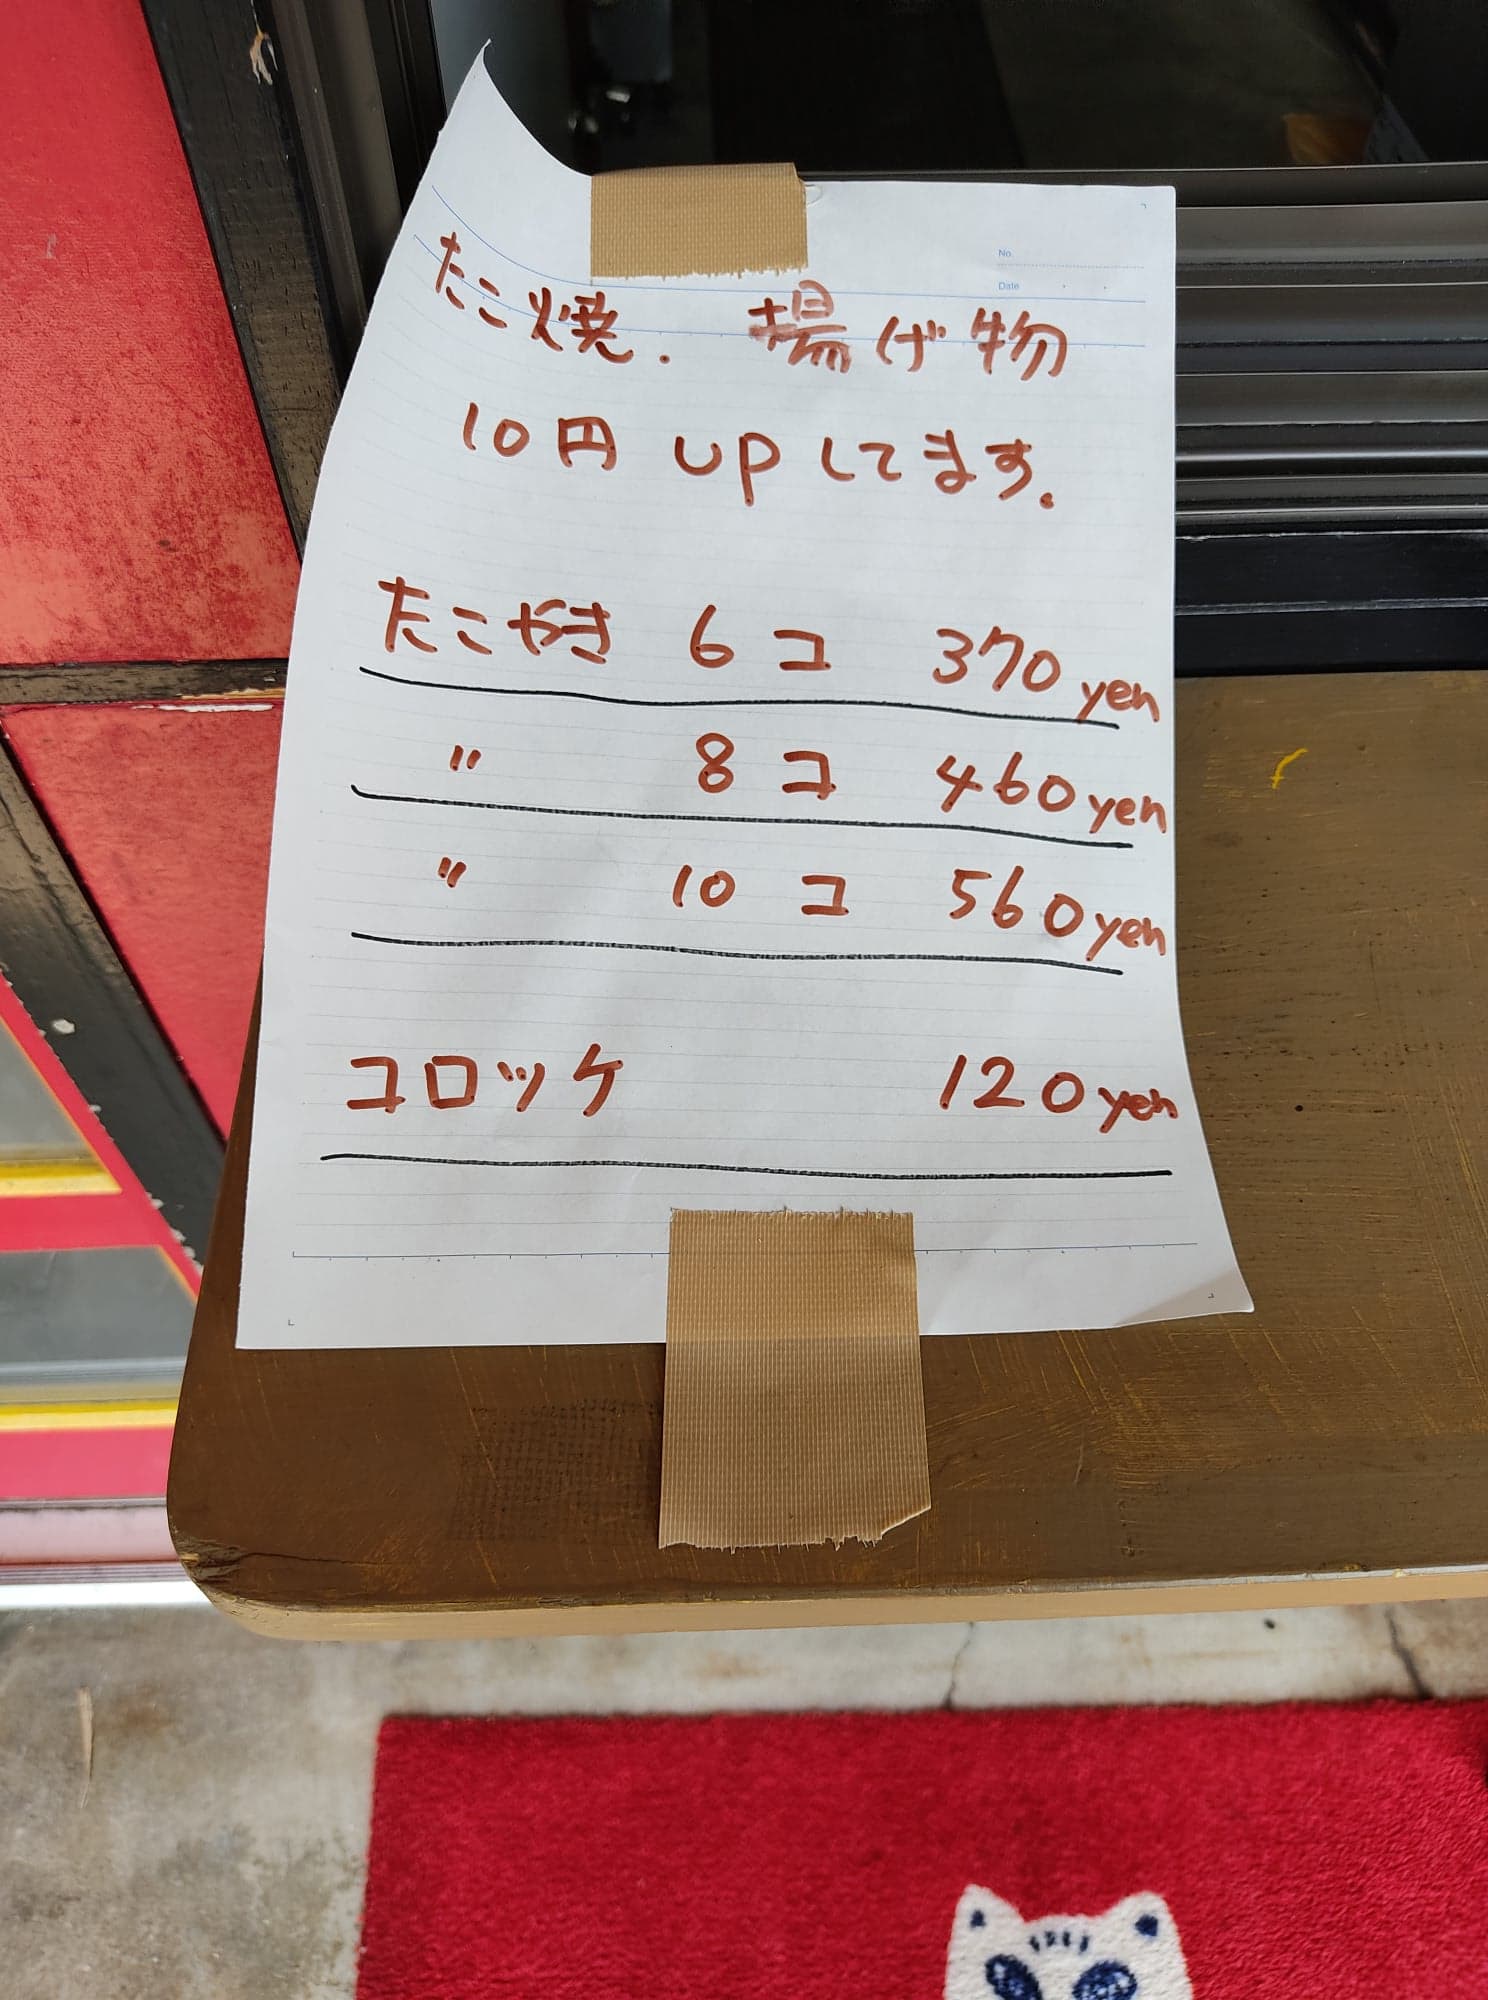 No.
Date ・ ・
たこ焼. 揚げ物
10円 UPしてます。
たこやき 6コ 370yen
〃 8コ 460yen
〃 10コ 560yen
コロッケ 120yen